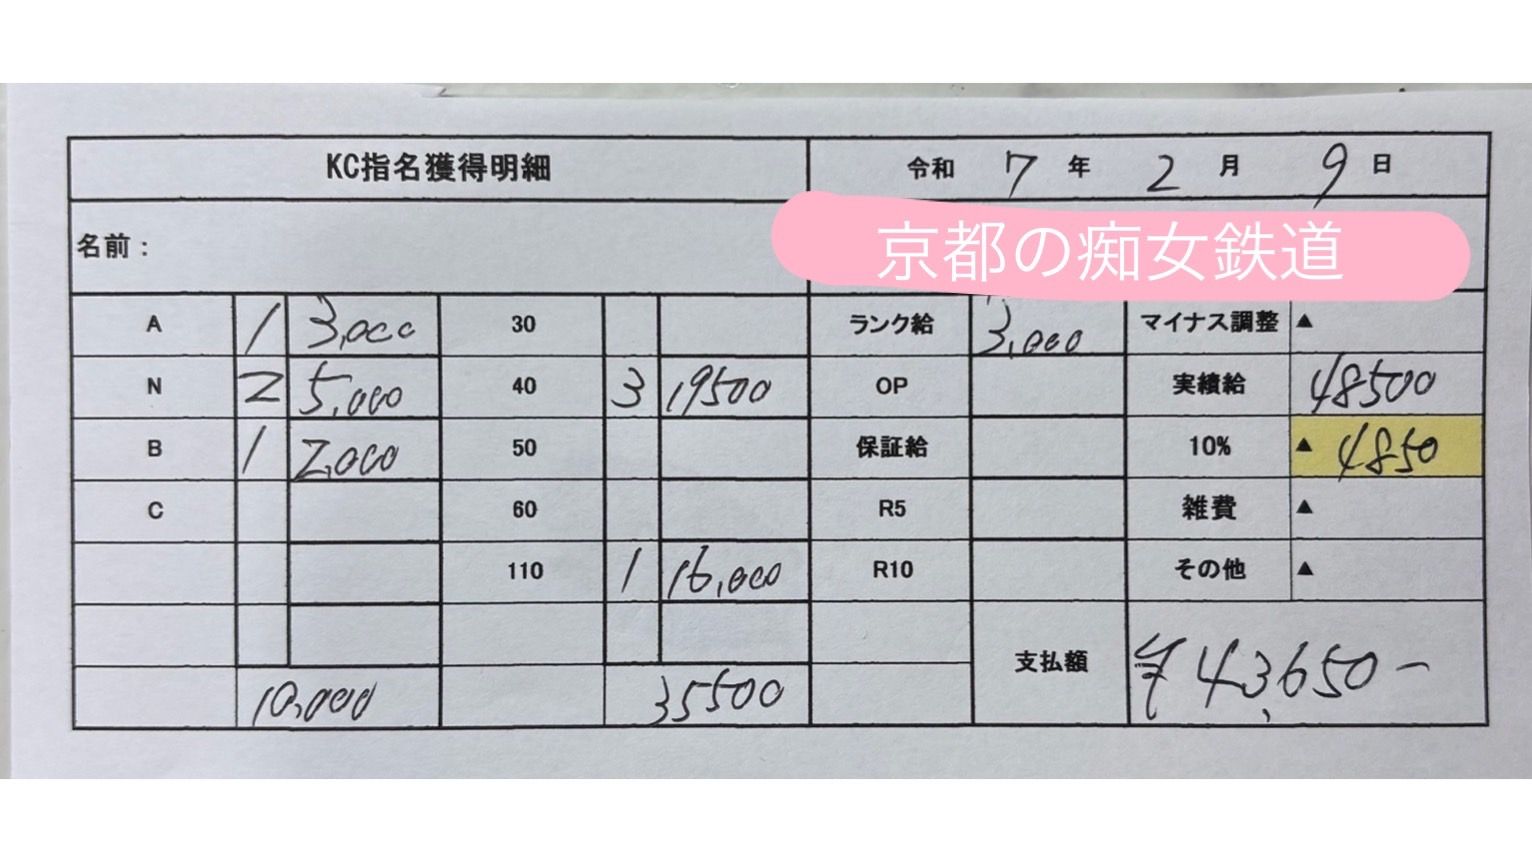 KC指名獲得明細 令和 7 年 2 月 9 日
名前：
京都の痴女鉄道
A 1 3,000 30 ランク給 3,000 マイナス調整 ▲
N 2 5,000 40 3 19500 OP 実績給 48500
B 1 2,000 50 保証給 10% ▲ 4850
C 60 R5 雑費 ▲
110 1 16,000 R10 その他 ▲
支払額 ¥43,650-
10,000 35500